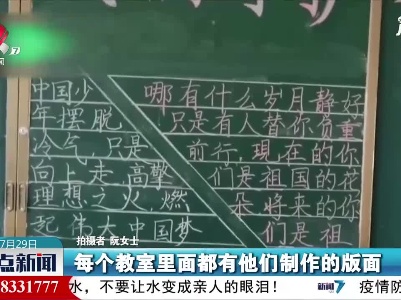 7
中国少
年摆脱
冷气 只是
向上走,高擎
理想之火,燃
中国梦
哪有什么岁月静好
只是有人替你负重
前行,现在的你
们是祖国的花
朵将来的你
们是祖
7月29日
拍摄者 阮女士
点新闻
每个教室里面都有他们制作的版面
8331777
水，不要让水变成亲人的眼泪！
新闻7
疫情防